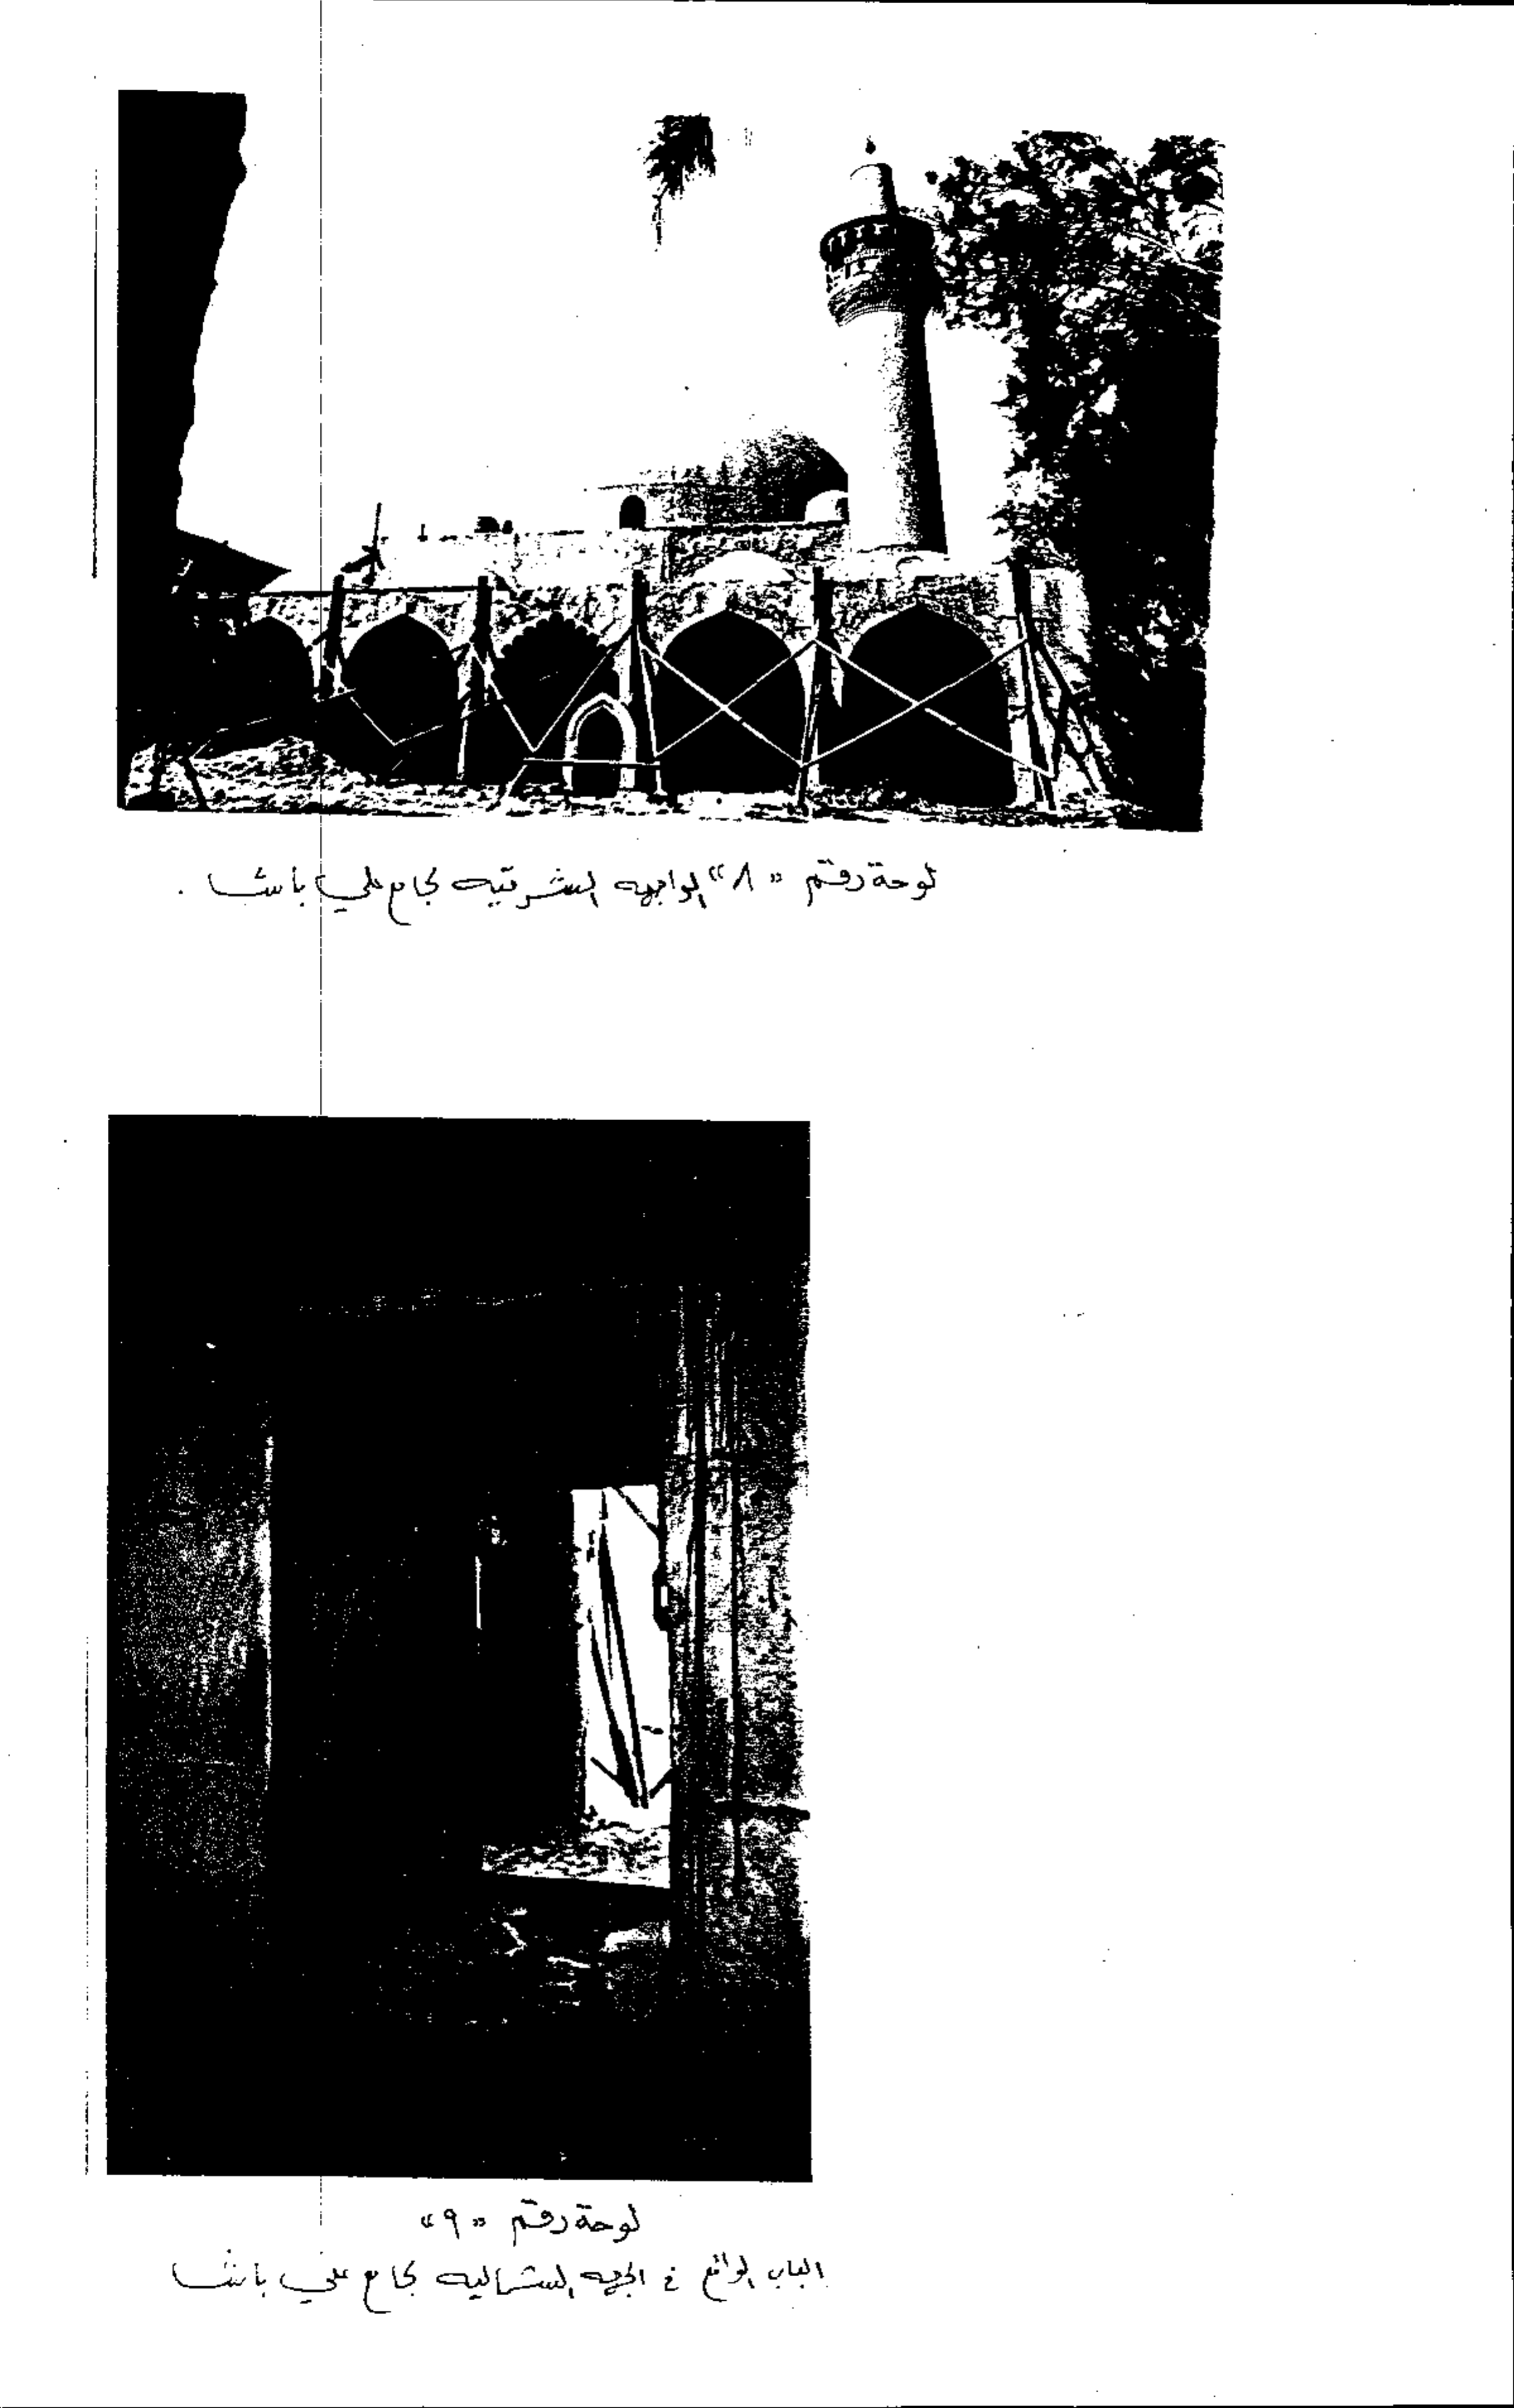 لوحة رقم «٨» الواجهه الشرقيه لجامع علي باشا .
لوحة رقم «٩»
الباب الواقع في الجهه الشماليه لجامع علي باشا